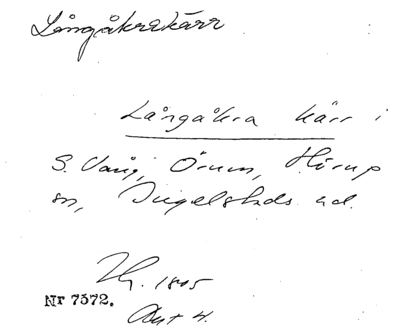 Långåkrakärr
Långåkra kärr i
S. Vång, Örum, Hörup
sn, Ingelstads hd.
1805
Nr 7372.
Akt 4.